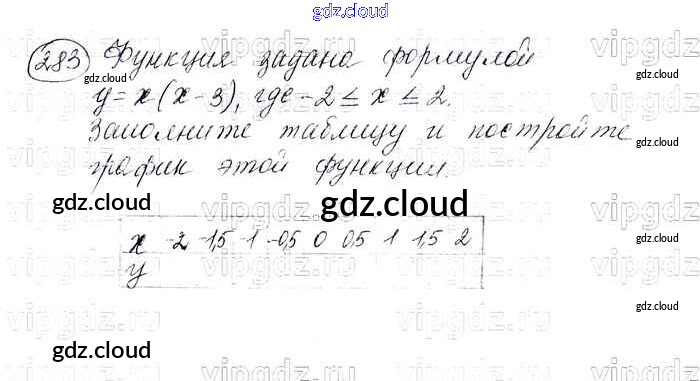 gdz.cloud
283 Функция задана формулой
y = x(x-3), где -2 ≤ x ≤ 2.
Заполните таблицу и постройте
график этой функции.
x -2 -1,5 -1 -0,5 0 0,5 1 1,5 2
y
gdz.cloud
gdz.cloud
gdz.cloud
gdz.cloud
gdz.cloud
gdz.cloud
gdz.cloud
gdz.cloud
gdz.cloud
vipgdz
vipgdz
vipgdz
vipgdz